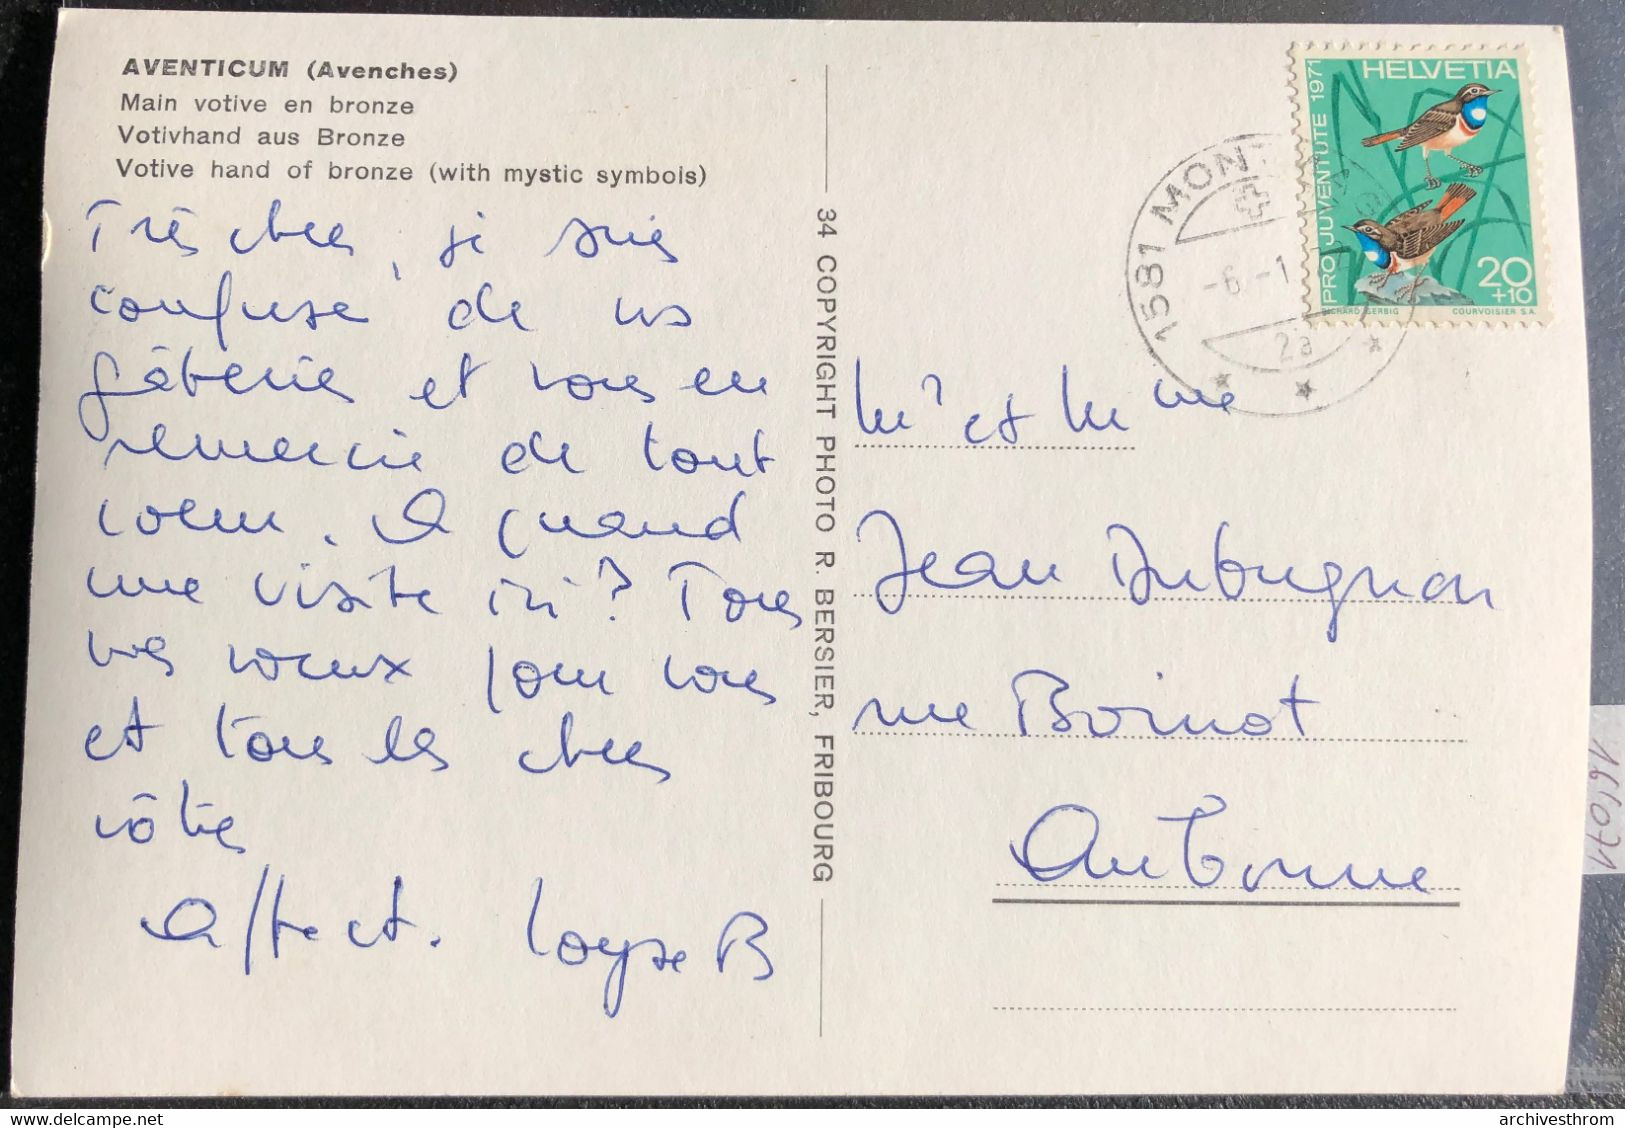 AVENTICUM (Avenches)
Main votive en bronze
Votivhand aus Bronze
Votive hand of bronze (with mystic symbols)
Très chers, je suis
confuse de vos
gâteries et vous en
remercie de tout
coeur. A quand
une visite ici? Tous
mes voeux pour vous
et tous les chers
vôtres
Affect. Loyse B
34 COPYRIGHT PHOTO R. BERSIER, FRIBOURG
1581 MONT
-6.-1
2a
HELVETIA
PRO JUVENTUTE 1971
20
+10
RICHARD GERBIG
COURVOISIER S.A.
Mr et Mme
Jean Dubugnon
rue Boinot
Aubonne
161071
www.delcampe.net
archivesthrom